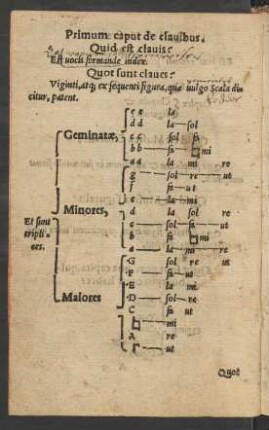 Primum caput de clauibus.
Quid est clauis?
Est uocis formandæ index.
Quot sunt claues?
Viginti, atq; ex sequenti figura, quæ uulgo Scala di
citur, patent.
e e la
d d la sol
c c sol fa
Geminatæ, b b fa ♮ mi
a a la mi re
g sol re ut
f fa ut
e la mi
Minores, d la sol re
c sol fa ut
Et sunt b fa ♮ mi
tripli-
ces. a la mi re
G sol re ut
F fa ut
E la mi
Maiores D sol re
C fa ut
♮ mi
A re
Γ ut
Quot